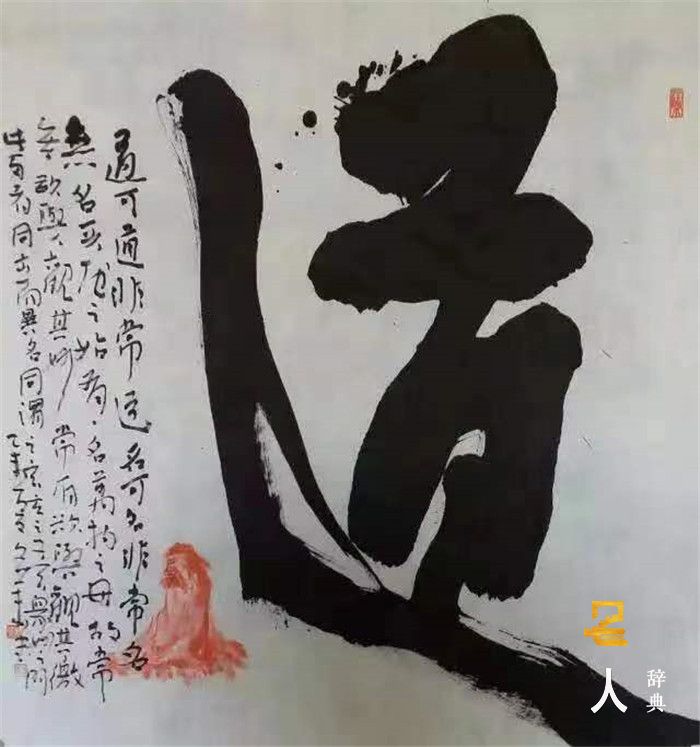 道
道可道非常道名可名非常名
無名天地之始有名萬物之母故常
無欲以觀其妙常有欲以觀其徼
此两者同出而異名同謂之玄玄之又玄眾妙之門
人
辞典